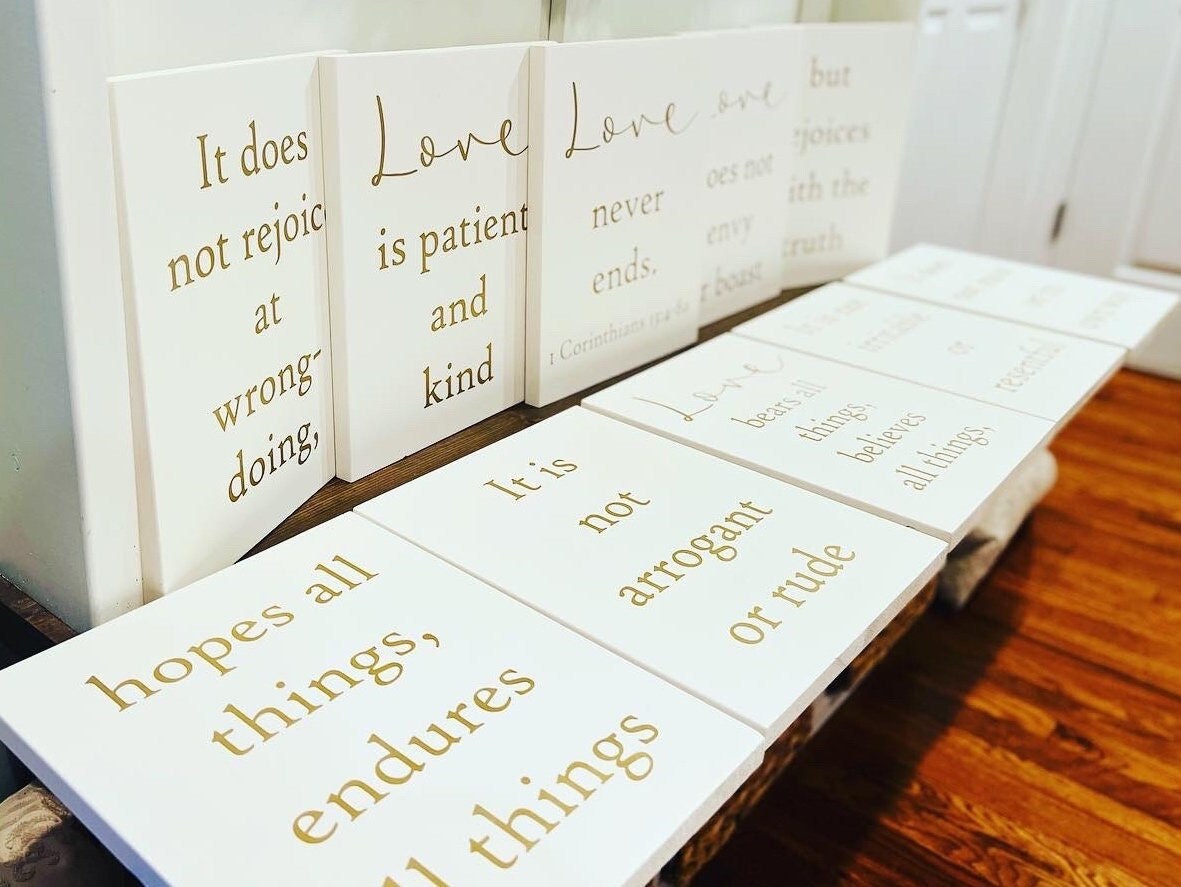 It does
not rejoic
at
wrong-
doing,
Love
is patient
and
kind
Love
never
ends.
1 Corinthians 13:4-8a
ove
oes not
envy
r boast
but
ejoices
ith the
truth
irritable
or
resentful
Love
bears all
things,
believes
all things,
It is
not
arrogant
or rude
hopes all
things,
endures
ll things